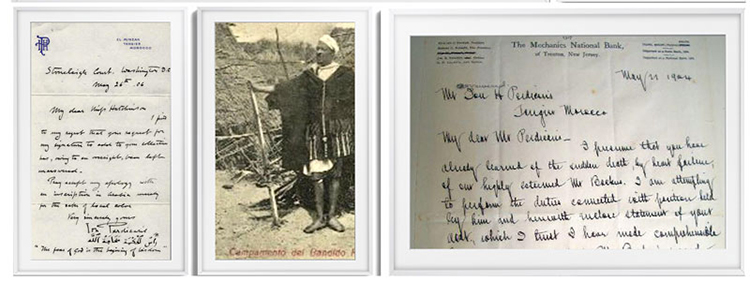 EL MINZAH
TANGIER
MOROCCO
Stoneleigh Court. Washington D.C
May 26th. 06
My dear Miss Hutchinson
I find
to my regret that your request for
my signature to add to your collection
has, owing to an oversight, been left
unanswered.
Pray accept my apology with
an inscription in Arabic merely
for the sake of local color
Very sincerely yours
Ion Perdicaris
"The fear of God is the beginning of wisdom
Campamento del Bandido R
The Mechanics National Bank,
of Trenton, New Jersey.
May 21 1904
Mr Ion H Perdicaris
Tangier Morocco
My dear Mr Perdicaris—
I presume that you have
already learned of the sudden death, by heart failure,
of our highly esteemed Mr I am attempting
to perform the duties connected with position held
by him and herewith enclose statement of your
acct, which I trust I have made comprehensible